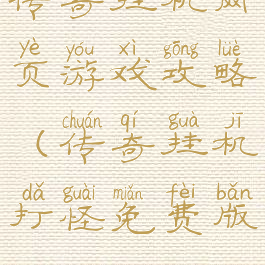 传奇挂机威
yè yóu xì gōng lüè
页游戏攻略
chuán qí guà jī
（传奇挂机
dǎ guài miǎn fèi bǎn
打怪免费版